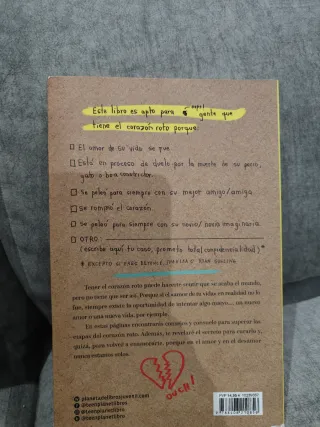 Este libro es apto para aquella gente que
tiene el corazón roto porque:
El amor de su vida se fue.
Está en proceso de duelo por la muerte de su perro,
gato o boa constrictor.
Se peleó para siempre con su mejor amigo/amiga.
Se rompió el corazón.
Se peleó para siempre con su novio/novia imaginaria.
OTRO:
(escribe aquí tu caso, prometo total confidencialidad)*
* EXCEPTO SI ERES
Tener el corazón roto puede hacerte sentir que se acaba el mundo,
pero no tiene que ser así. Porque si el amor de tu vida en realidad no lo
fue, siempre existe la oportunidad de intentar algo nuevo... un nuevo
amor o una nueva vida, por ejemplo.
En estas páginas encontrarás cuentos y consejos para superar las
etapas del corazón roto. Además, te revelaré el secreto para curarlo y,
quizá, para volver a enamorarte, porque en el amor y en el desamor
nunca estamos solos.
OUCH!
planetadelibrosjuvenil.com
@teenplanetlibros